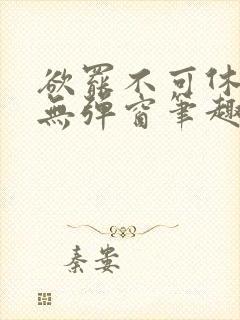 欲罷不可休
無彈窗筆趣
秦嵏